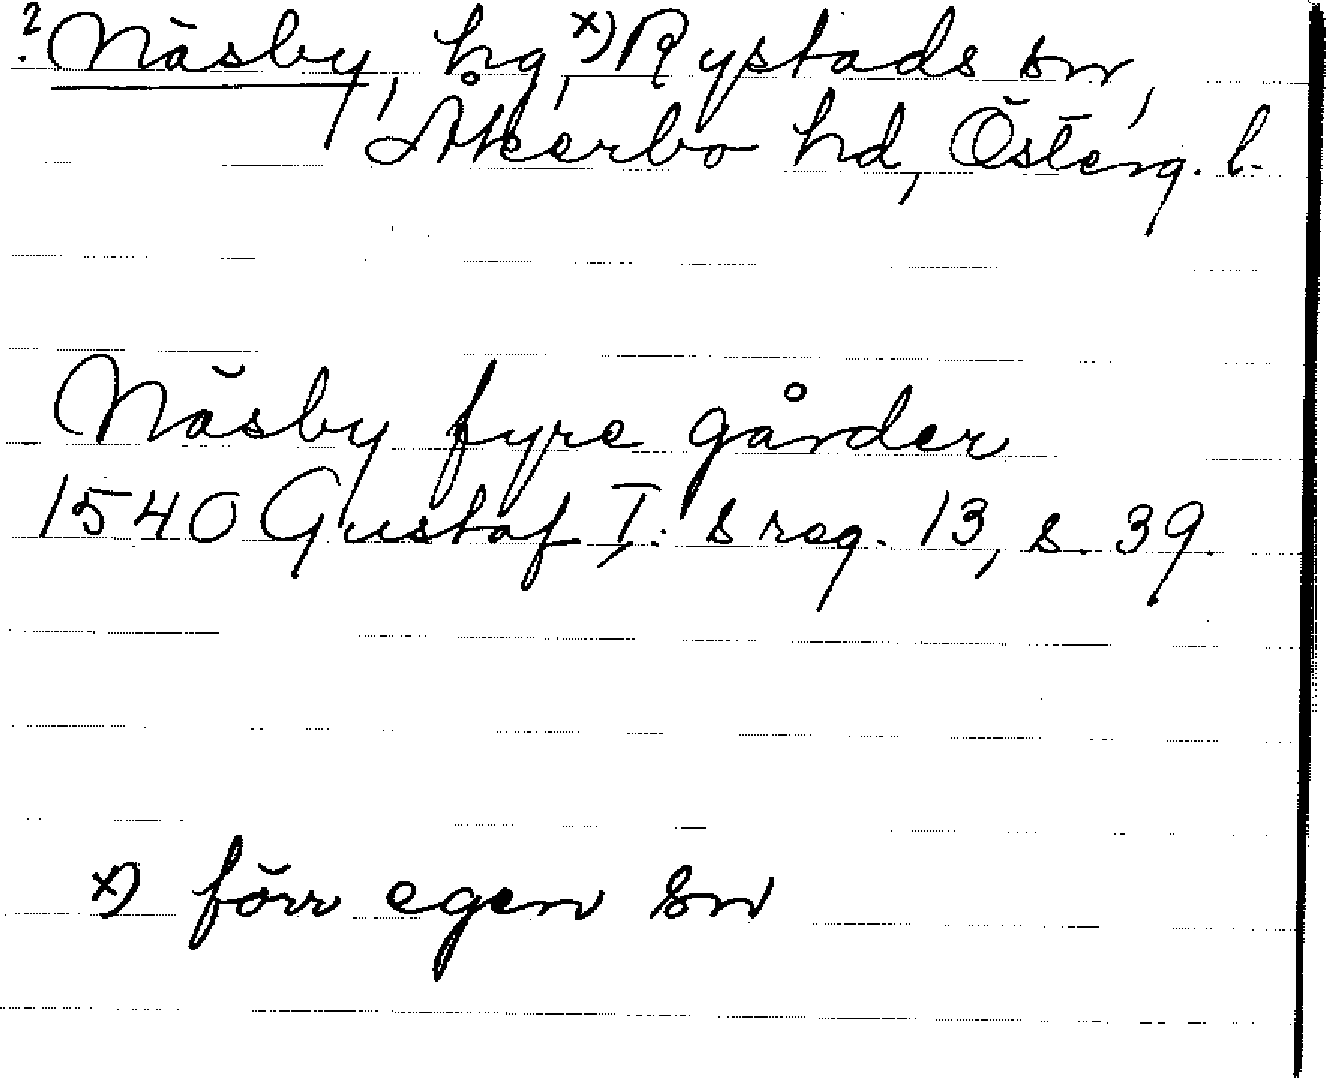 ? Näsby, hg,ˣ⁾ Rystads sn,
Åkerbo hd, Österg. l.
Näsby fyre gårder
1540 Gustaf I:s reg. 13, s. 39.
x) förr egen sn